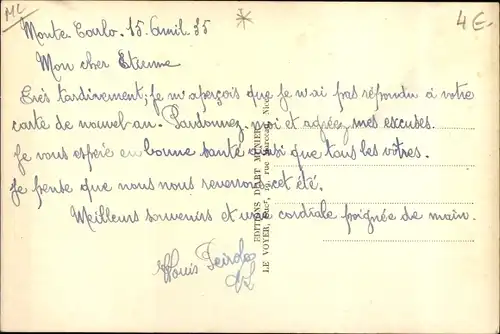 MC
4€
Monte Carlo. 15. Avril. 35
Mon cher Etienne
Très tardivement, je m'aperçois que je n'ai pas répondu à votre
carte de nouvel-an. Pardonnez-moi et agréez mes excuses.
Je vous espère en bonne santé ainsi que tous les vôtres.
Je pense que nous nous reverrons cet été.
Meilleurs souvenirs et une cordiale poignée de main.
Louis
EDITIONS D'ART MUNIER
LE VOYER, rue Nice